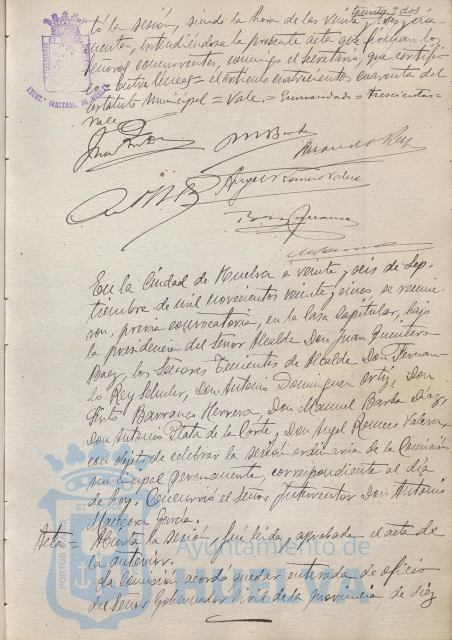 treinta y dos
tó la sesión, siendo la hora de las veinte y tres cin-
cuenta, extendiéndose la presente acta que firman los
Señores concurrentes, conmigo el secretario, que certifi-
co. Entre lineas = el artículo cuatrocientos cuarenta del
estatuto Municipal = Vale. = Enmendado = trescientas =
vale
M Barba
Fernando Rey
Angel Romero Valera
En la Ciudad de Huelva a veinte y seis de Sep-
tiembre de mil novecientos veinte y cinco, se reunie-
ron, previa convocatoria, en la Casa Capitular, bajo
la presidencia del Señor Alcalde Don Juan Quintero
Baez, los Señores Tenientes de Alcalde Don Fernan-
do Rey Schuler, Don Antonio Dominguez Ortiz, Don
Sixto Barranco Herrera, Don Manuel Barba Díaz,
Don Antonio Plata de la Corte, y Don Angel Romero Valera,
con objeto de celebrar la sesión ordinaria de la Comisión
municipal permanente, correspondiente al día
de hoy. Concurrió el Señor Interventor Don Antonio
García.
Acta = Abierta la sesión, fué leída y aprobada el acta de
la anterior.
La Comisión acordó quedar enterada de oficio
del Señor Gobernador Civil de la provincia de diez
Ayuntamiento de
HUELVA